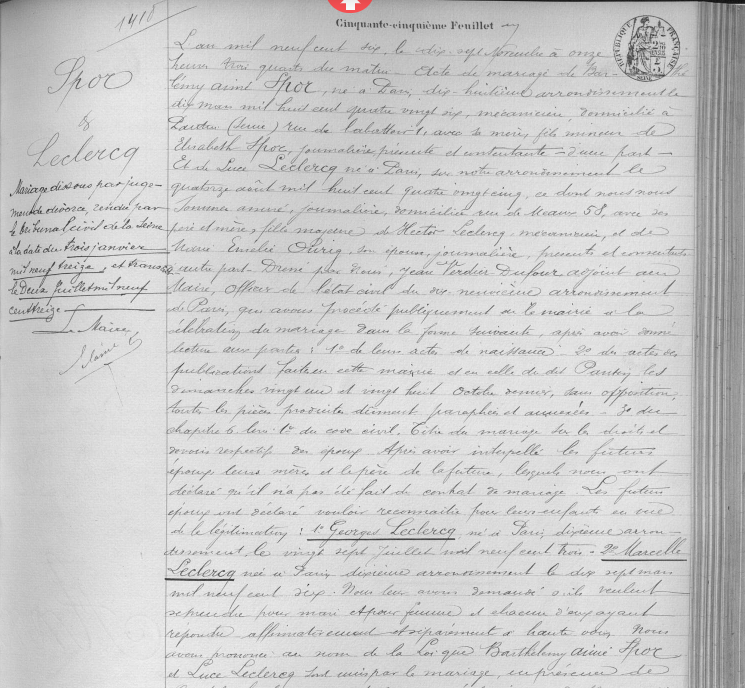 Cinquante-cinquième Feuillet
1418
Spor
&
Leclercq
Mariage dissous par juge-
ment de divorce, rendu par
le tribunal civil de la Seine
à la date du trois janvier
mil neuf treize, et transc
le Deux Juillet mil neuf
cent treize
Le Maire
RÉPUBLIQUE FRANÇAISE
L'an mil neuf cent six, le dix-sept Novembre à onze
heures trois quarts du matin - Acte de mariage de Bar-thé
lémy aimé Spor, né à Paris, dix-huitième arrondissement le
dix mars mil huit cent quatre vingt six, mécanicien, domicilié à
Pantin (Seine) rue de l'abattoir 1, avec sa mère, fils mineur de
Elisabeth Spor, journalière, présente et consentante - d'une part -
Et de Luce Leclercq né à Paris, sur notre arrondissement le
quatorze août mil huit cent quatre vingt cinq, ce dont nous nous
sommes assuré, journalière, domiciliée rue de Meaux 58, avec ses
père et mère, fille majeure de Hector Leclercq, mécanicien, et de
Marie Emélie son épouse, journalière, présents et consentants
d'autre part - Dressé par Nous, Jean Verdier Dufour adjoint au
Maire, officier de l'état civil du dix neuvième arrondissement
de Paris, qui avons procédé publiquement en la mairie à la
célébration du mariage dans la forme suivante, après avoir donné
lecture aux parties : 1° de leurs actes de naissance 2° des actes des
publications faites en cette mairie et en celle de dit Pantin, les
dimanches vingt un et vingt huit Octobre dernier, sans opposition,
toutes les pièces produites dûment paraphées et annexées - 3° du
chapitre 6 livre 1er du code civil, titre du mariage sur les droits et
devoirs respectifs des époux. Après avoir interpellé les futurs
époux leurs mères et le père de la future, lesquels nous ont
déclaré qu'il n'a pas été fait de contrat de mariage. Les futurs
époux ont déclaré vouloir reconnaître pour leurs enfants en vue
de la légitimation : 1° Georges Leclercq, né à Paris, dixième arron-
dissement, le vingt sept juillet mil neuf cent trois - 2° Marcelle
Leclercq née à Paris dixième arrondissement le dix sept mars
mil neuf cent six. Nous leur avons demandé s'ils veulent
se prendre pour mari et pour femme et chacun d'eux ayant
répondu affirmativement et séparément à haute voix, Nous
avons prononcé au nom de la Loi que Barthélemy aimé Spor
et Luce Leclercq sont unis par le mariage, en présence de